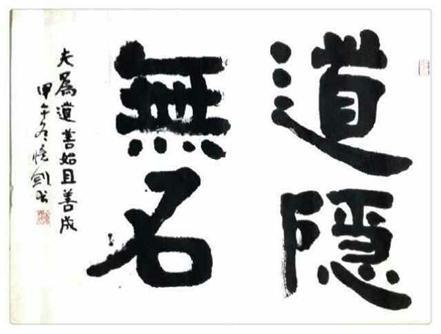 道隱
無名
夫爲道善始且善成
甲午冬 劍书